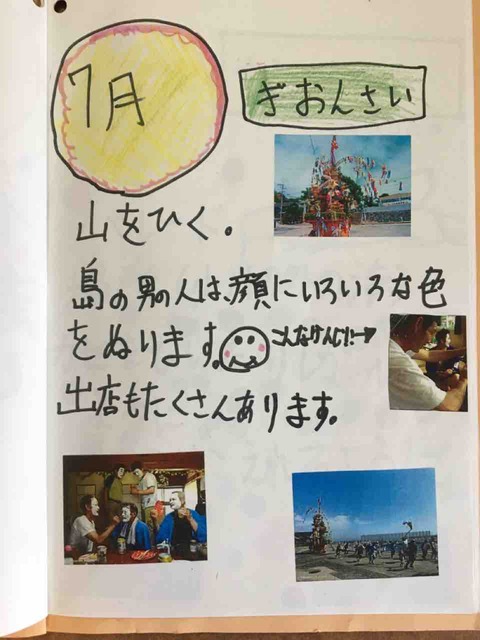 7月
ぎおんさい
山をひく。
島の男の人は、顔にいろいろな色
をぬります。
こんなかんじ!→
出店もたくさんあります。